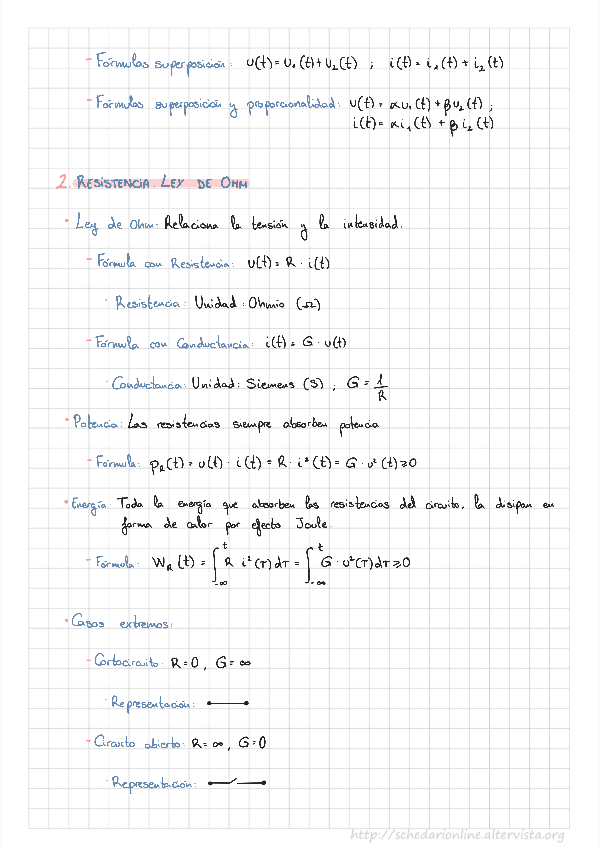 - Fórmulas superposición: u(t) = u₁(t) + u₂(t) ; i(t) = i₁(t) + i₂(t)
- Fórmulas superposición y proporcionalidad: u(t) = αu₁(t) + βu₂(t) ;
i(t) = αi₁(t) + βi₂(t)
2. RESISTENCIA. LEY DE OHM
• Ley de Ohm: Relaciona la tensión y la intensidad.
- Fórmula con Resistencia: u(t) = R · i(t)
· Resistencia: Unidad: Ohmio (Ω)
- Fórmula con Conductancia: i(t) = G · u(t)
· Conductancia: Unidad: Siemens (S) ; G = 1/R
• Potencia: Las resistencias siempre absorben potencia
- Fórmula: p_R(t) = u(t) · i(t) = R · i²(t) = G · u²(t) ≥ 0
• Energía: Toda la energía que absorben las resistencias del circuito, la disipan en
forma de calor por efecto Joule.
- Fórmula: W_R(t) = ∫_{-∞}^{t} R i²(τ)dτ = ∫_{-∞}^{t} G · u²(τ)dτ ≥ 0
• Casos extremos:
- Cortocircuito: R = 0, G = ∞
· Representación:
- Circuito abierto: R = ∞, G = 0
· Representación:
http://schedarionline.altervista.org